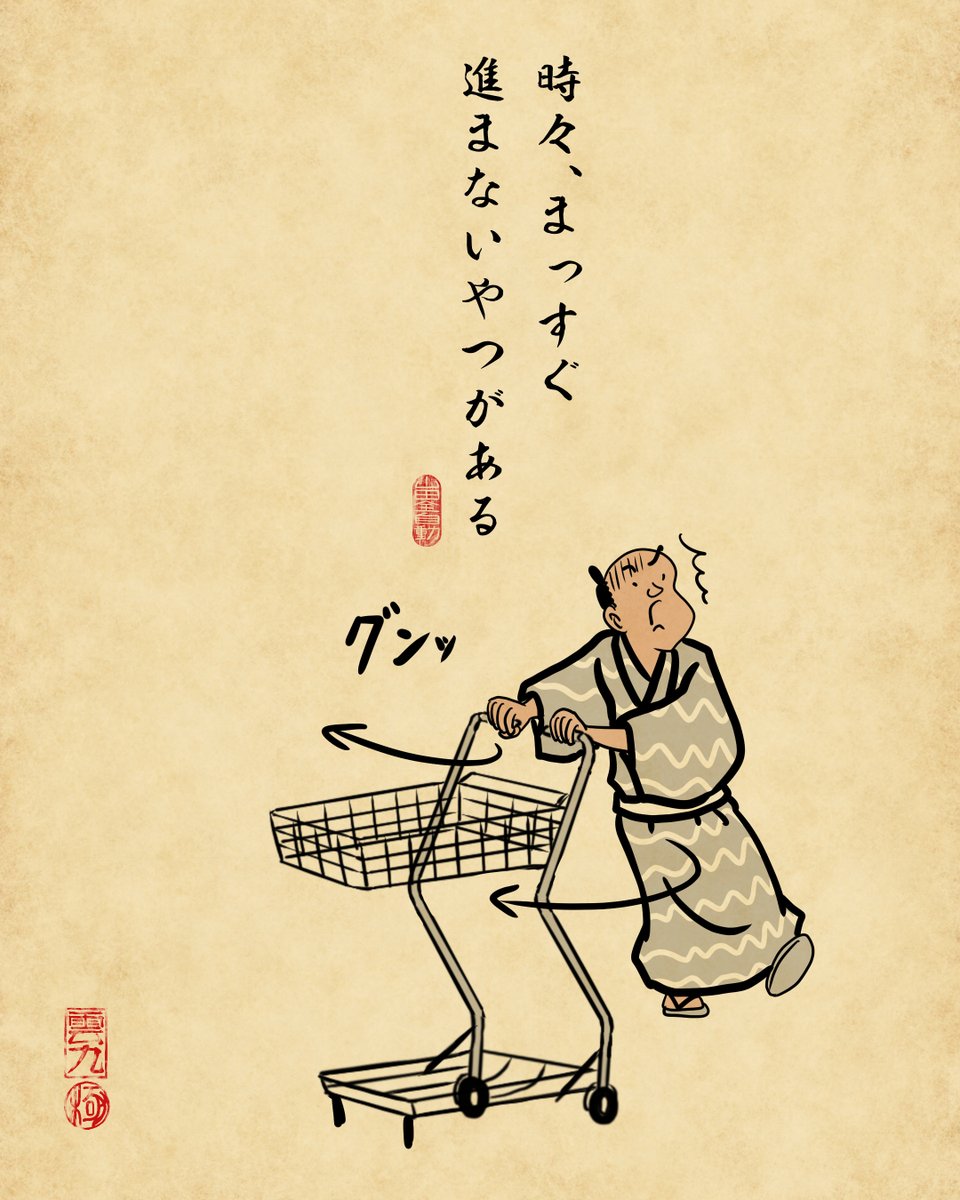 時々、まっすぐ
進まないやつがある
グンッ
雲九
極